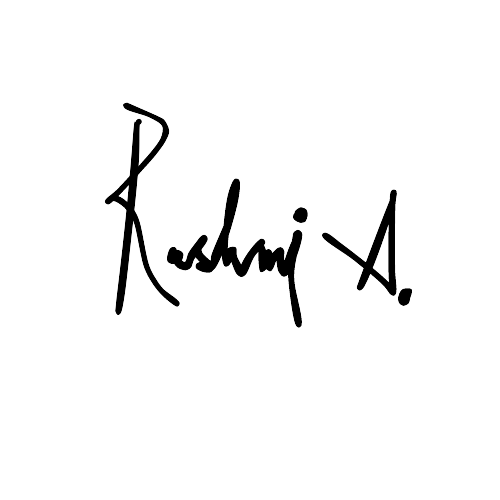 Rashmi A.